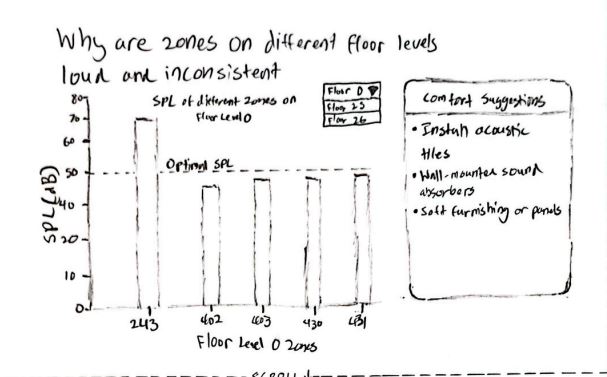 Why are zones on different floor levels
loud and inconsistent
SPL of different zones on
Floor Level 0
Floor 0
Floor 25
Floor 26
Optimal SPL
SPL(dB)
80
70
60
50
40
20
10
0
243
402
403
430
431
Floor Level 0 Zones
Comfort Suggestions
• Install acoustic
tiles
• Wall-mounted sound
absorbers
• Soft furnishing or panels